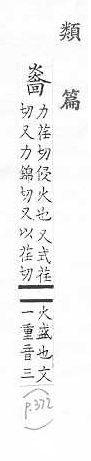 類篇
力荏切侵火也又式荏
切又力錦切又以荏切
火盛也文
一重音三
(p.372)